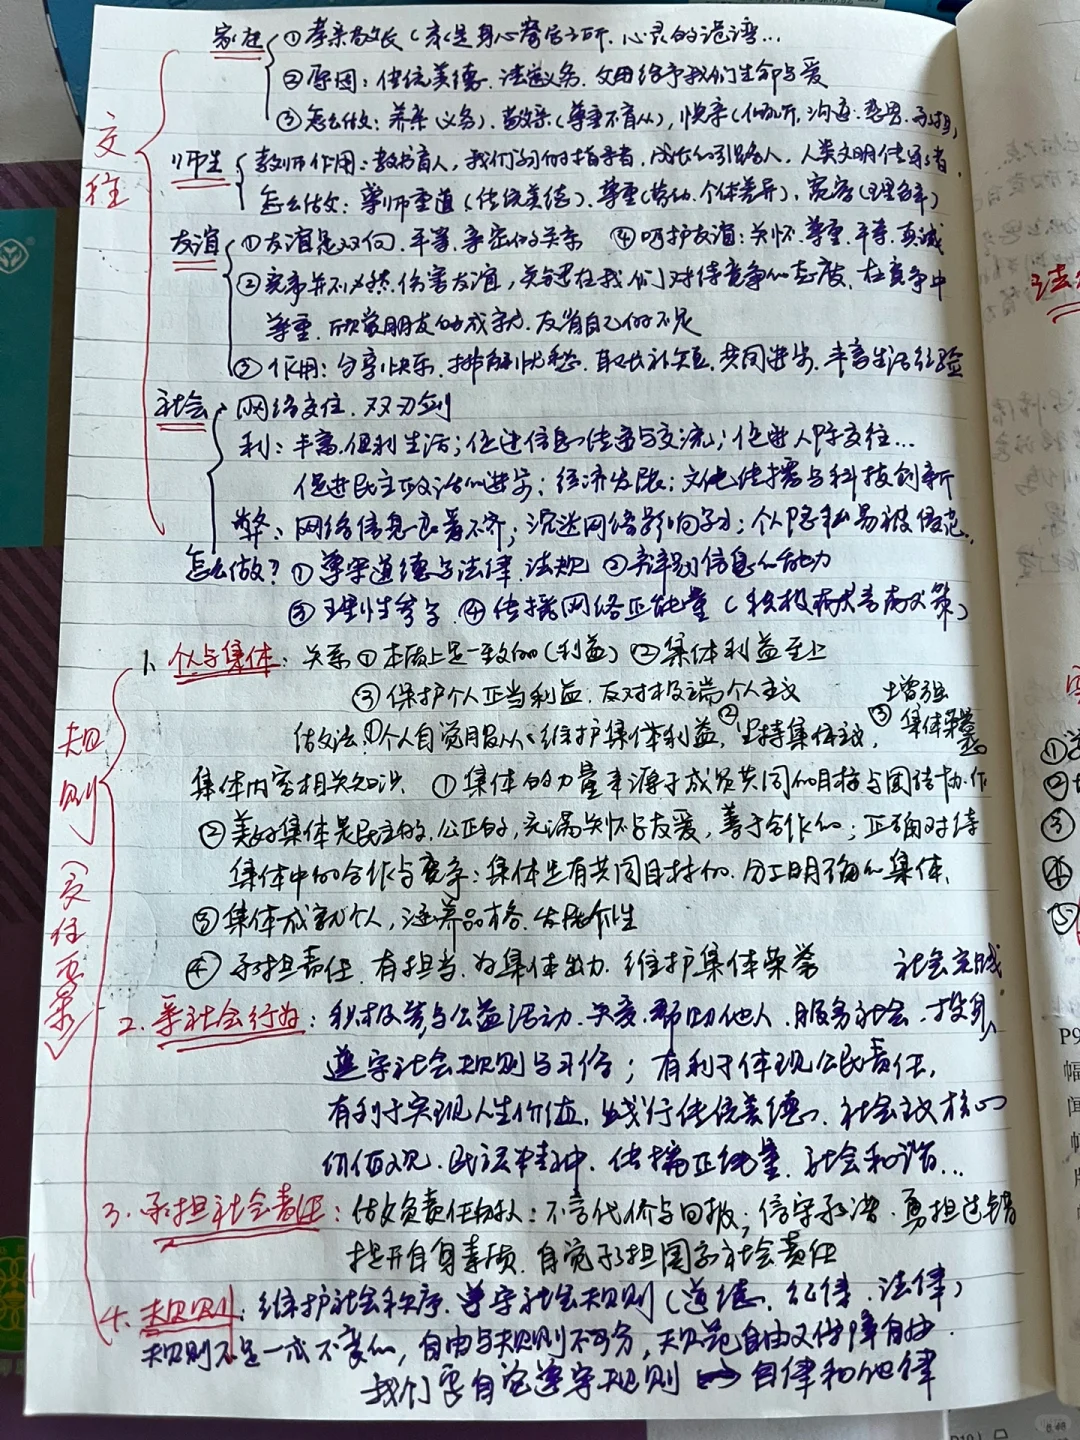 家庭 ①孝亲敬长(家是身心寄居之所、心灵的港湾…
②原因:传统美德、法定义务、父母给予我们生命与爱
③怎么做:养亲(义务)、敬亲(尊重不盲从),悦亲(倾听,沟通、感恩、承担)
交往
师生 教师作用:教书育人,我们学习的指导者,成长的引路人,人类文明传承者、
怎么做:尊师重道(传统美德)、尊重(劳动、个体差异)、宽容(理解)
友谊 ①友谊是双向、平等、亲密的关系 ④呵护友谊:关怀、尊重、平等、真诚
②竞争并不必然伤害友谊,关键在我们对待竞争的态度、在竞争中
尊重、欣赏朋友的成就、反省自己的不足
③作用:分享快乐、排解忧愁、取长补短、共同进步、丰富生活经验
社会 网络交往、双刃剑
利:丰富、便利生活;促进信息传递与交流;促进人际交往…
促进民主政治的进步;经济发展;文化传播与科技创新
弊:网络信息良莠不齐;沉迷网络影响学习;个人隐私易被侵犯..
怎么做?①遵守道德与法律、法规 ②辨别信息的能力
③理性参与 ④传播网络正能量(积极献言献策)
1、个人与集体:关系①本质上是一致的(利益)②集体利益至上
③保护个人正当利益、反对极端个人主义
做法:①个人自觉服从、维护集体利益,②坚持集体主义,③增强集体荣誉感
规则(责任要素)
集体内容相关知识 ①集体的力量来源于成员共同的目标与团结协作
②美好集体是民主的、公正的,充满关怀与友爱,善于合作的;正确对待
集体中的合作与竞争;集体是有共同目标的、分工明确的集体、
③集体成就个人,涵养品格、发展个性
④承担责任、有担当、为集体出力、维护集体荣誉
2、亲社会行为:积极参与公益活动、关爱、帮助他人、服务社会、投身社会实践
遵守社会规则与习俗;有利于体现公民责任,
有利于实现人生价值,践行传统美德、社会主义核心
价值观、民族精神、传播正能量、社会和谐…
3、承担社会责任:做负责任的人:不言代价与回报;信守承诺、勇担过错
提升自身素质、自觉承担国家社会责任
4、规则:维护社会秩序、遵守社会规则(道德、纪律、法律)
规则不是一成不变的,自由与规则不可分,规范自由又保障自由.
我们要自觉遵守规则→自律和他律